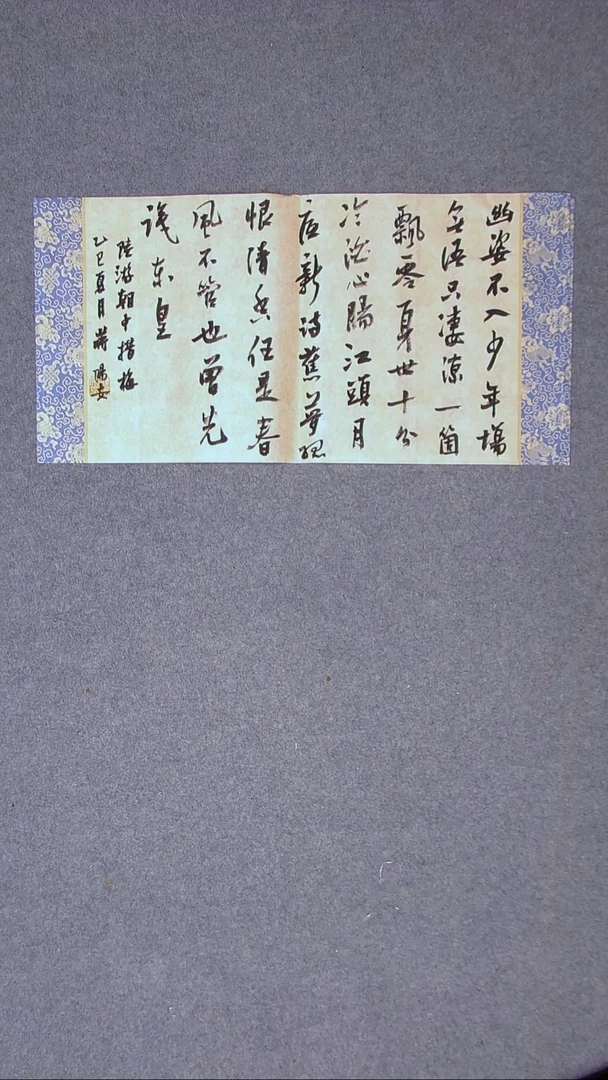 幽姿不入少年塲
無語只凄涼一箇
飄零身世十分
冷淡心腸江頭月
底新詩舊夢孤
恨清香任是春
風不管也曾先
識东皇
陸游朝中措梅
乙巳夏月蔣陽